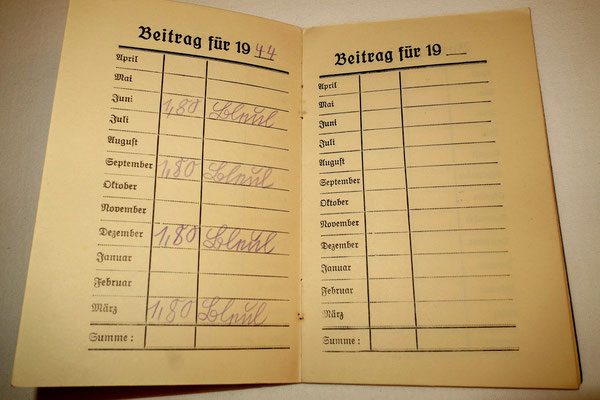 Beitrag für 19 44
April
Mai
Juni 1,80 Bleul
Juli
August
September 1,80 Bleul
Oktober
November
Dezember 1,80 Bleul
Januar
Februar
März 1,80 Bleul
Summe :
Beitrag für 19
April
Mai
Juni
Juli
August
September
Oktober
November
Dezember
Januar
Februar
März
Summe :